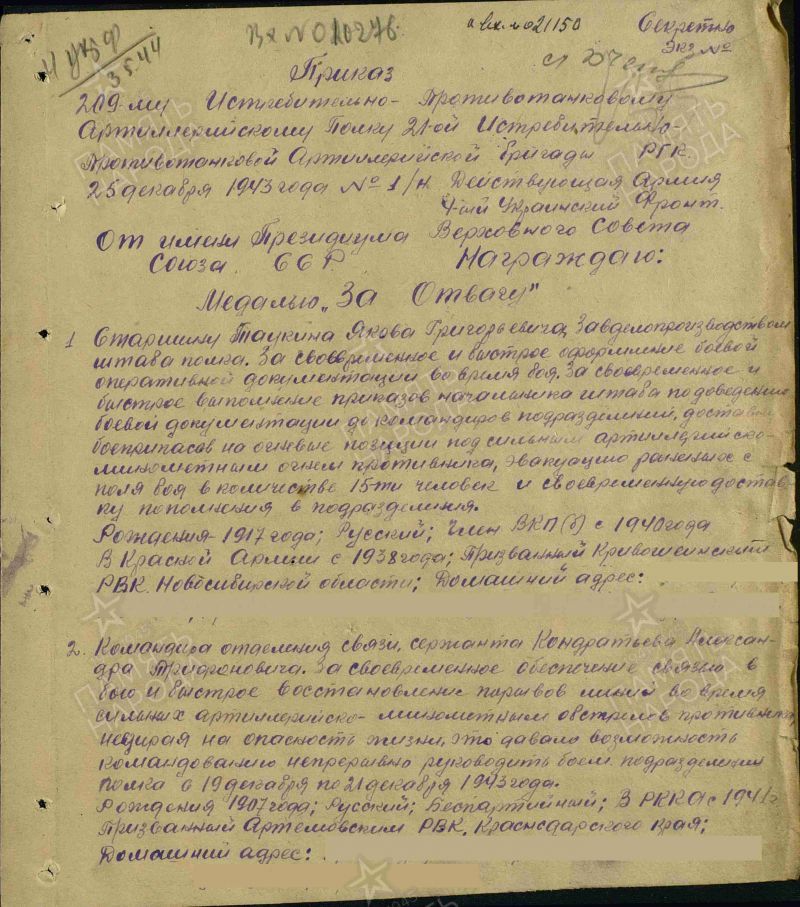 Вх № 010276
и вх. № 021150
Секретно
Экз №
4 Укр Ф
3 5.44
Приказ
209-му Истребительно-Противотанковому
Артиллерийскому Полку 21-ой Истребительно-
Противотанковой Артиллерийской бригады РГК.
25 декабря 1943 года № 1/н Действующая Армия
4-ый Украинский Фронт.
От имени Президиума Верховного Совета
Союза ССР. Награждаю:
Медалью „За Отвагу"
1 Старшину Таукина Якова Григорьевича, Завделопроизводством
штаба полка. За своевременное и быстрое оформление боевой
оперативной документации во время боя. За своевременное и
быстрое выполнение приказов начальника штаба по доведению
боевой документации до командиров подразделений, доставку
боеприпасов на огневые позиции под сильным артиллерийско-
минометным огнем противника, эвакуацию раненных с
поля боя в количестве 15-ти человек и своевременную достав-
ку пополнения в подразделения.
Рождения 1917 года; Русский; Член ВКП(б) с 1940 года
В Красной Армии с 1938 года; Призванный Кривошеинским
РВК. Новосибирской области; Домашний адрес:
2. Командира отделения связи, сержанта Кондратьева Алексан-
дра Трифоновича. За своевременное обеспечение связью в
бою и быстрое восстановление порывов линий во время
сильных артиллерийско-минометным обстрелов противника
невзирая на опасность жизни, это давало возможность
командованию непрерывно руководить боем подразделений
полка с 19 декабря по 21 декабря 1943 года.
Рождения 1907 года; Русский; Беспартийный; В РККА с 1941 г
Призванный Артемовским РВК, Краснодарского края;
Домашний адрес: